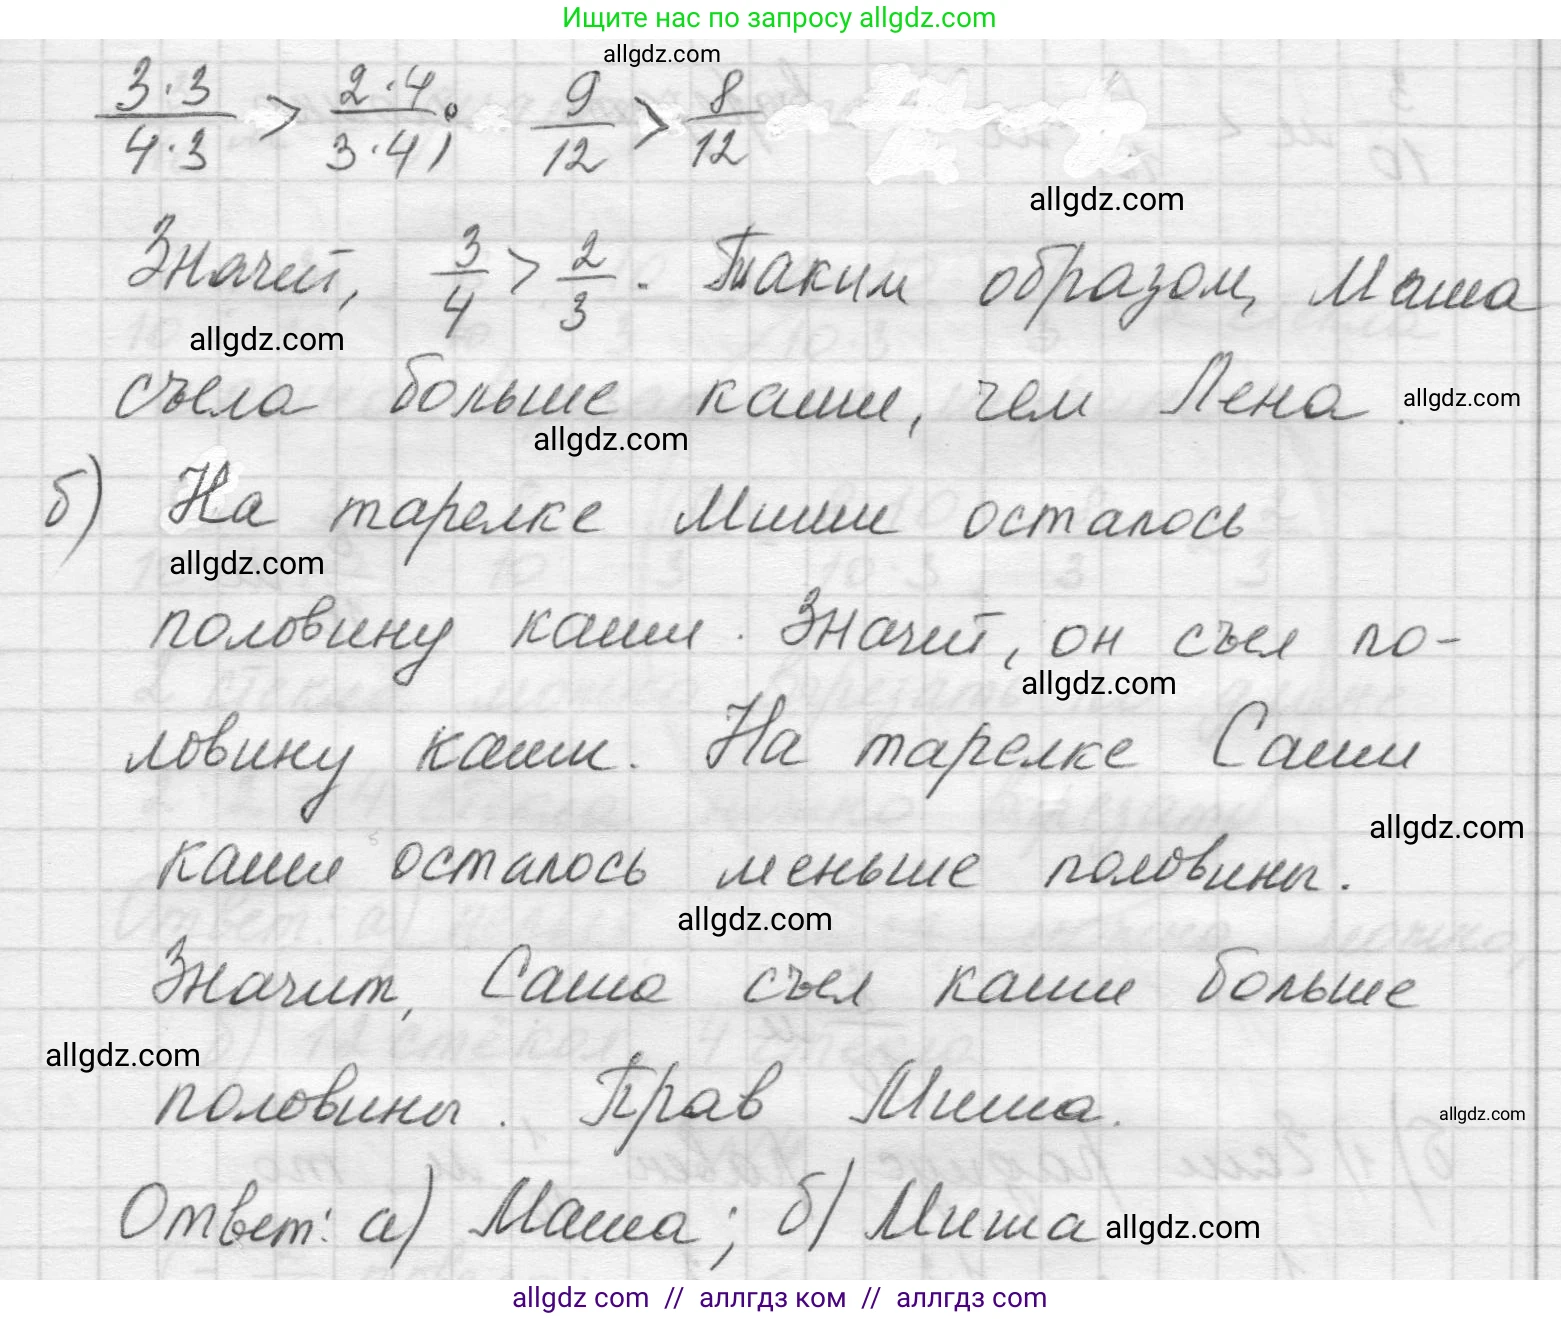 Ищите нас по запросу allgdz.com
allgdz.com
3·3/4·3 > 2·4/3·4; 9/12 > 8/12
allgdz.com
Значит, 3/4 > 2/3. Таким образом, Маша
allgdz.com
съела больше каши, чем Лена.
allgdz.com
allgdz.com
б) На тарелке Миши осталось
allgdz.com
половину каши. Значит, он съел по-
allgdz.com
ловину каши. На тарелке Саши
allgdz.com
каши осталось меньше половины.
allgdz.com
Значит, Саша съел каши больше
allgdz.com
половины. Прав Миша.
allgdz.com
Ответ: а) Маша; б) Миша
allgdz.com
allgdz com // аллгдз ком // аллгдз com